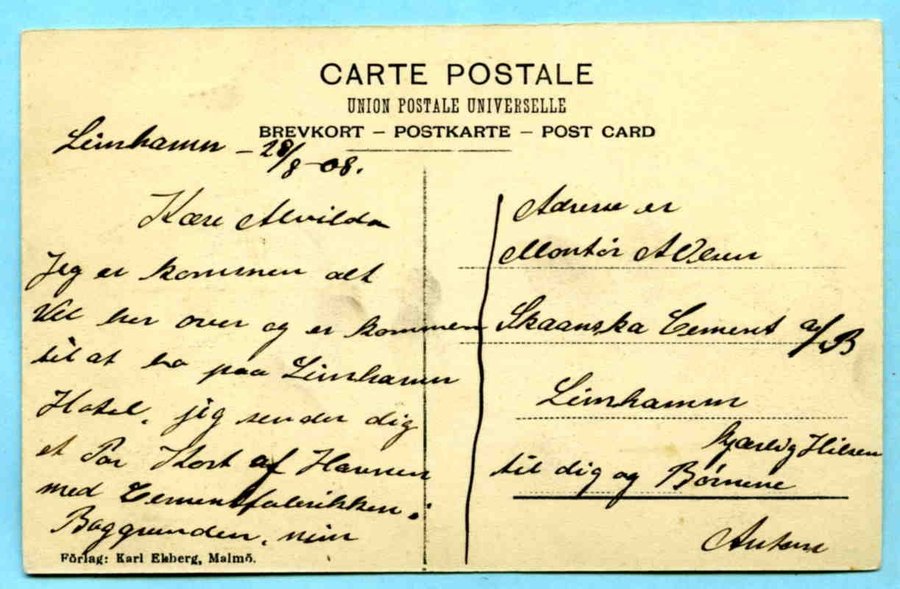 CARTE POSTALE
UNION POSTALE UNIVERSELLE
BREVKORT – POSTKARTE – POST CARD
Limhamn – 28/8 – 08.
Kære Alvilda
Jeg er kommen alt
Vel her over og er kommen
til at bo paa Limhamn
Hotel. jeg sender dig
et Par Kort af Havnen
med Cementfabrikken i
Baggrunden. min
Adresse er
Montör A Olsen
Skaanska Cement a/B
Limhamn
kjærlig Hilsen
til dig og Børnene
Anton
Förlag: Karl Ekberg, Malmö.